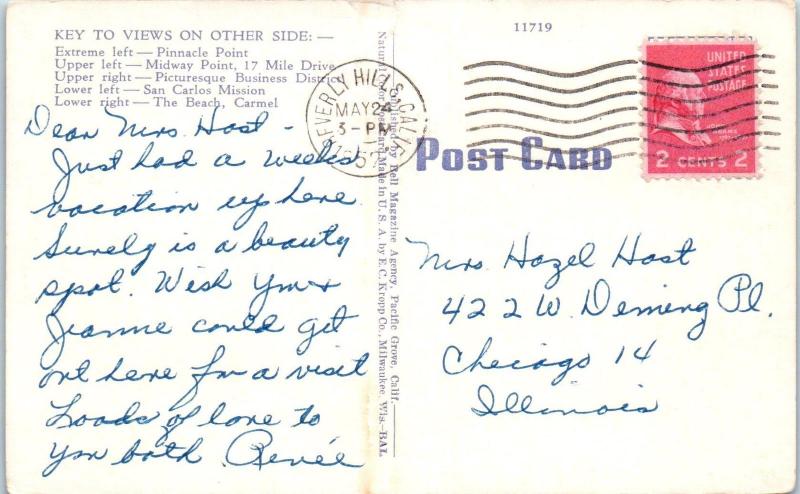 KEY TO VIEWS ON OTHER SIDE: —
Extreme left — Pinnacle Point
Upper left — Midway Point, 17 Mile Drive
Upper right — Picturesque Business District
Lower left — San Carlos Mission
Lower right — The Beach, Carmel
Dear Mrs. Host -
Just had a weeks
vacation up here
Surely is a beauty
spot. Wish you +
Jeanne could get
out here for a visit
Loads of love to
you both. Renée
Natural Color Post Card Made in U. S. A. by E. C. Kropp Co., Milwaukee, Wis.—BAL
Published by Bell Magazine Agency, Pacific Grove, Calif.
11719
BEVERLY HILLS, CALIF.
MAY 24
3-PM
UNITED
STATES
POSTAGE
2 CENTS 2
POST CARD
Mrs. Hazel Host
422 W. Deming Pl.
Chicago 14
Illinois